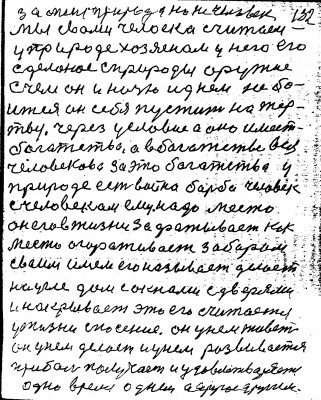 за      природа но не человек 132
Мы своли человека считаем
у природе хозяеном у него его
сделоное с природы оружие
с чем он и ночю и днем не бо-
ится он себя пустит на жер-
тву. через условие а оно имеет-
богатства, а в богатстве вся
человекова за это богатства у
природе есть война борба человек
с человекам ему надо место
он его в жизни задрачивает как
место огораживает забором
своим имем его называет делает
на угле дом с окнами с дверями
и накрывает это его считается
у жизни спосение. он у нем живет
он у нем делает и у нем развивается
прибол получает и удовлетваряется
одно время одним а другое другим.